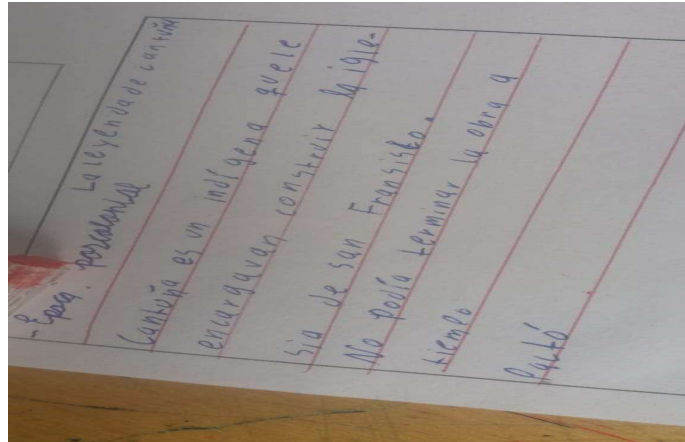 La leyenda de cantuña
- Epoca. poscolonial
Cantuña es un indígena que le
encargavan construir la igle-
sia de san Fransisco.
No podía terminar la obra a
tiempo
Pactó